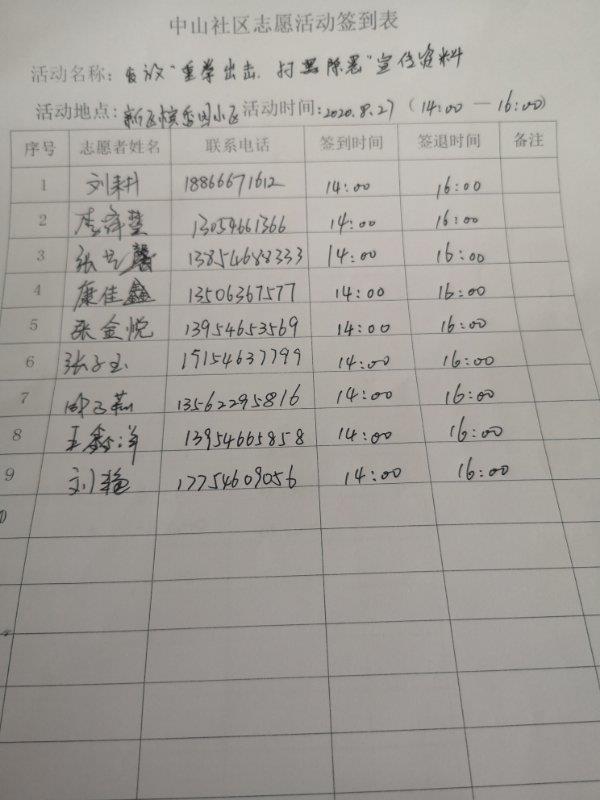 中山社区志愿活动签到表
活动名称: 发放"重拳出击,扫黑除恶"宣传资料
活动地点: 新区缤香园小区 活动时间: 2020.8.27 (14:00 — 16:00)
序号 志愿者姓名 联系电话 签到时间 签退时间 备注
1 刘耕 18866671612 14:00 16:00
2 13054661366 14:00 16:00
3 张 馨 13854688333 14:00 16:00
4 康佳鑫 13506367577 14:00 16:00
5 张金悦 13954653569 14:00 16:00
6 张子玉 19154637799 14:00 16:00
7 13562295816 14:00 16:00
8 王鑫洋 13954665858 14:00 16:00
9 刘艳 17754609056 14:00 16:00